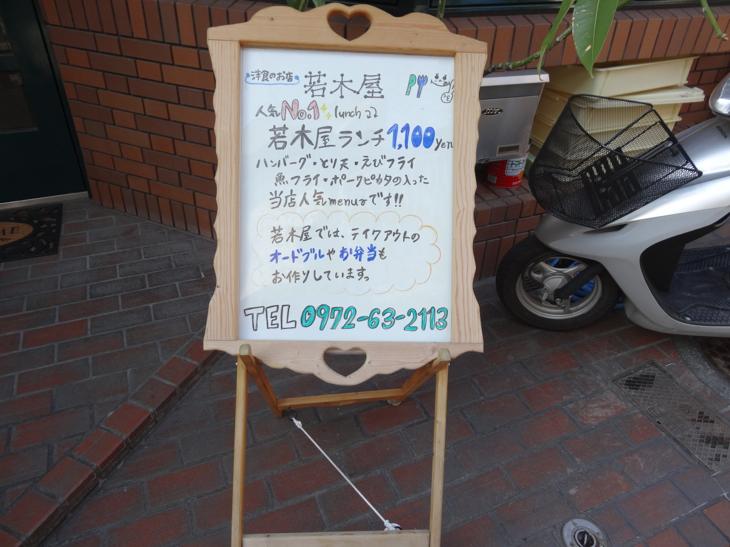 洋食のお店 若木屋
人気No.1 lunch は
若木屋ランチ 1,100yen
ハンバーグ・とり天・えびフライ
魚フライ・ポークピカタの入った
当店人気menuです!!
若木屋では、テイクアウトの
オードブルやお弁当も
お作りしています。
TEL 0972-63-2113